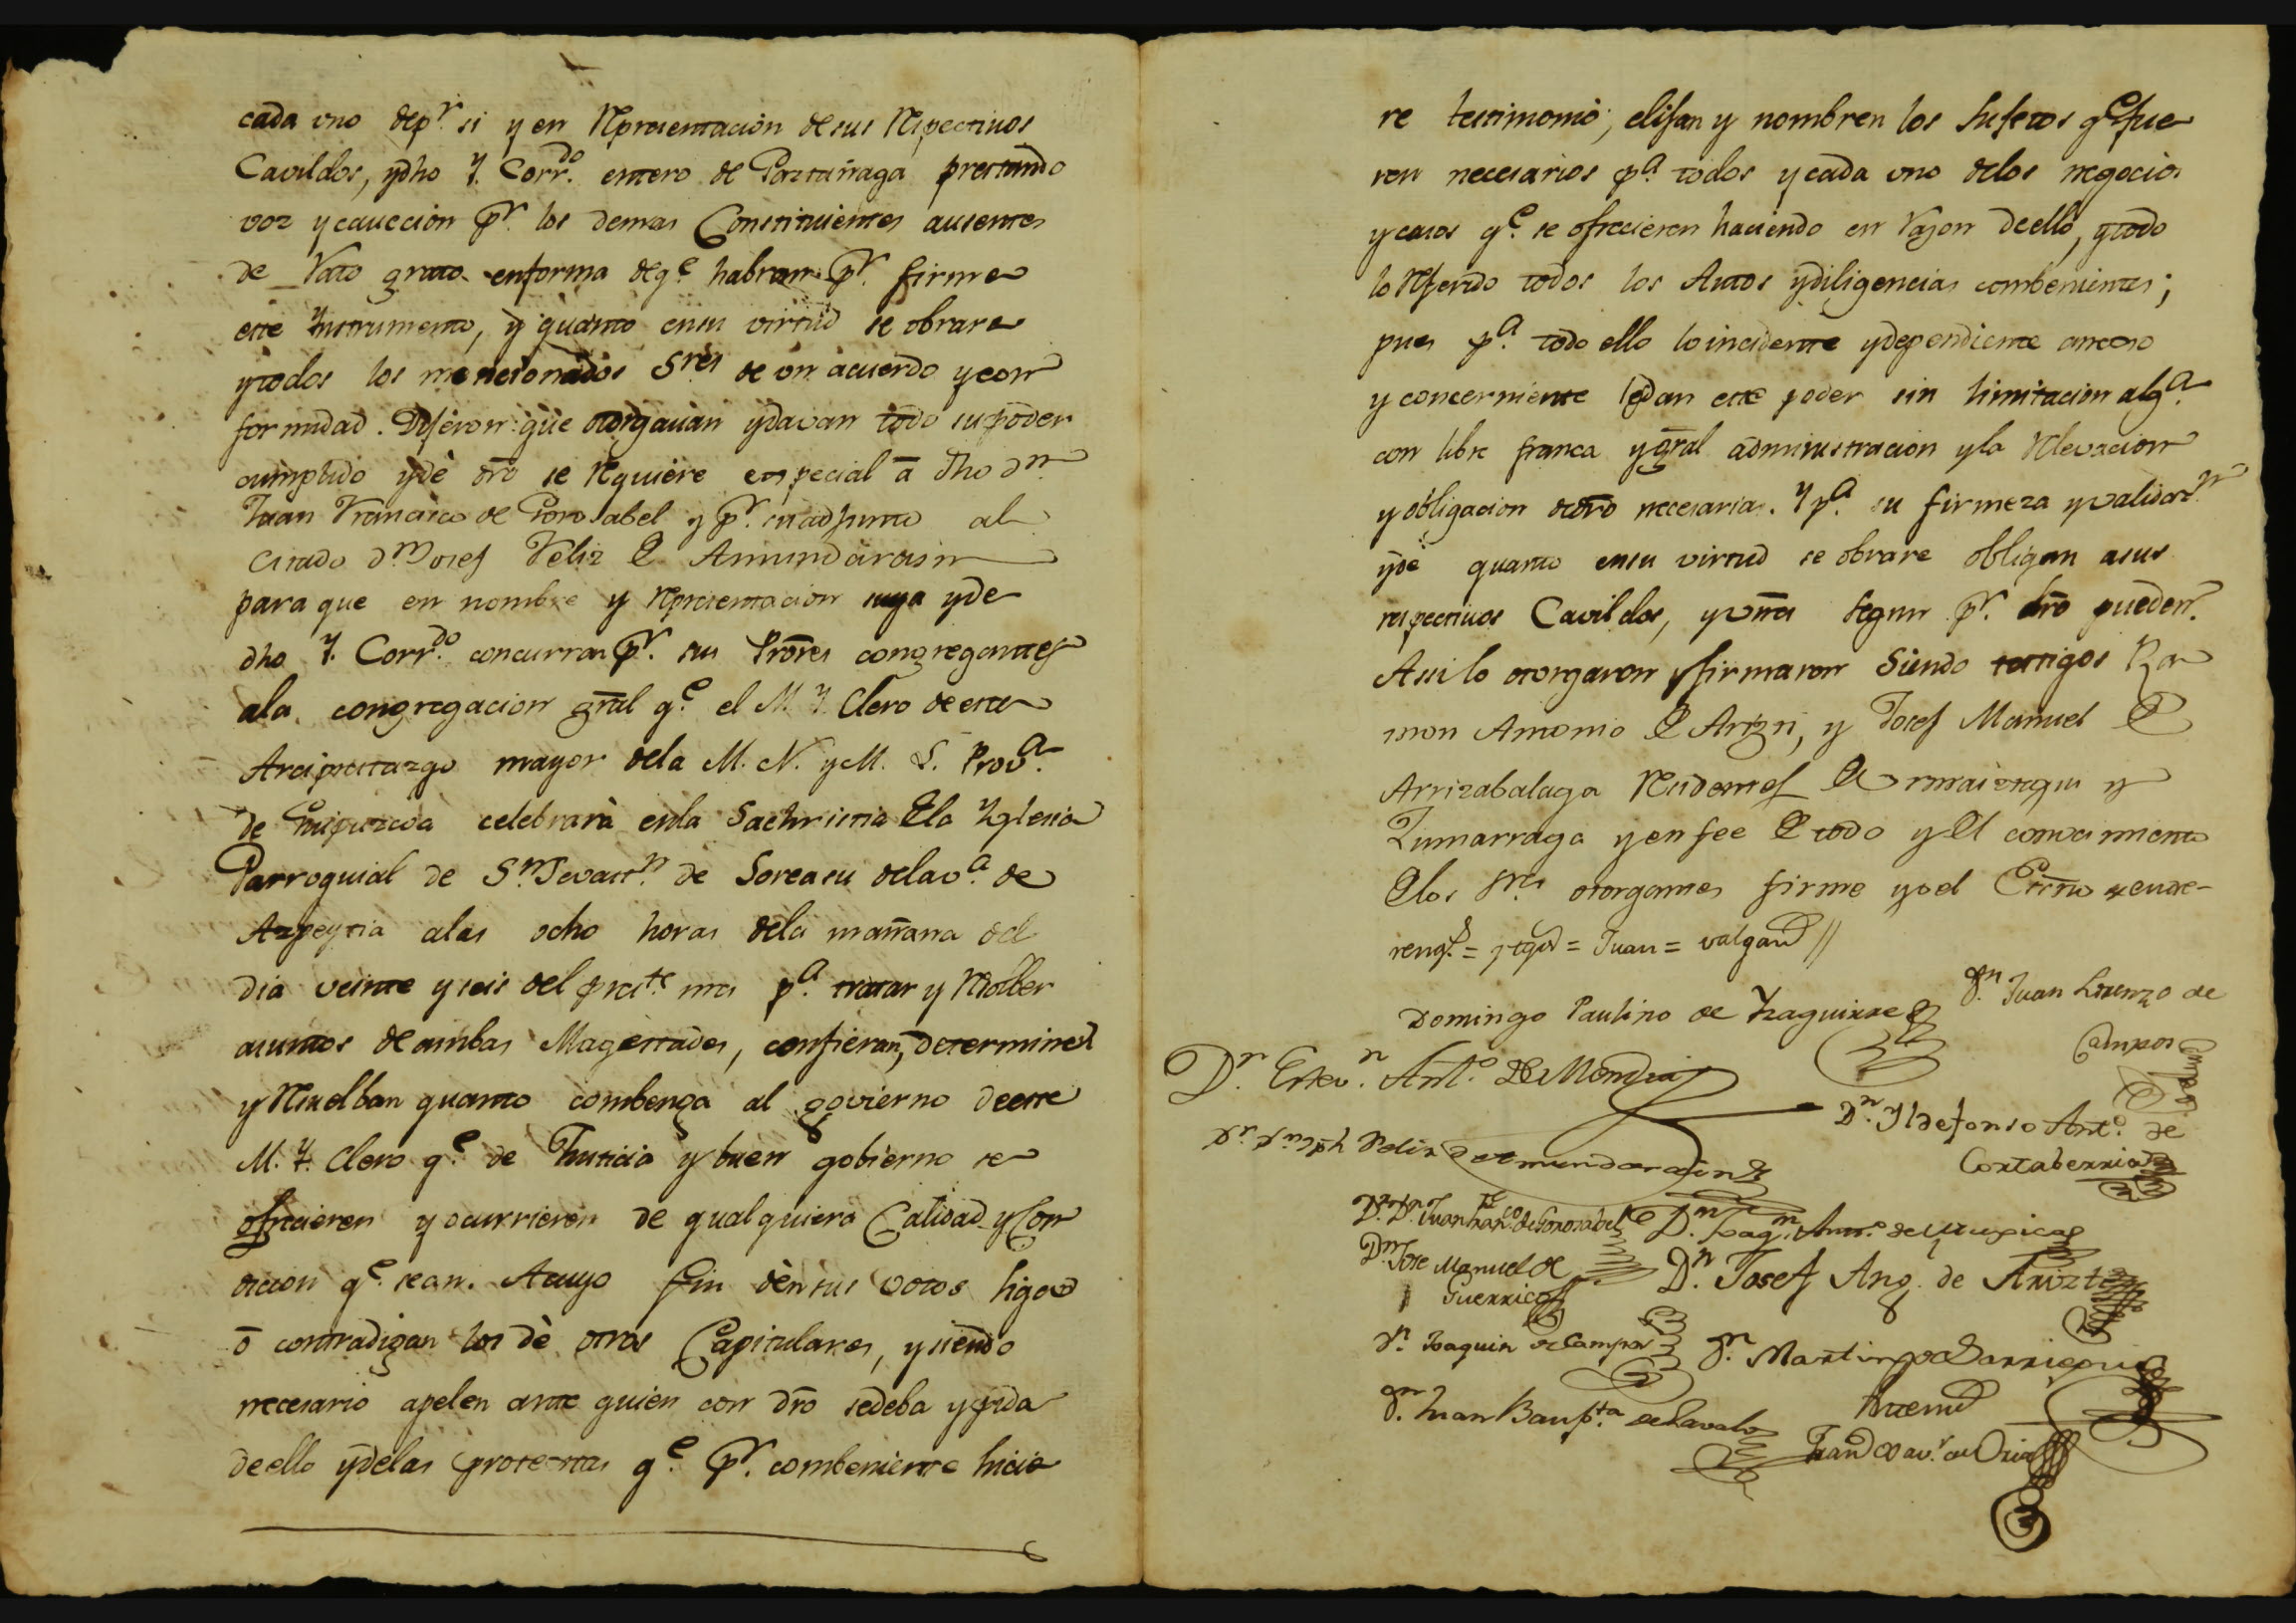 cada uno depr. si y en Representacion de sus Respectivos
Cavildos, ydho Y. Corrdo. entero de prestando
voz y caucion pr. los demas Constituientes ausentes
de Rato grato enforma deqe. habran pr. firme
este Instrumento, y quanto ensu virtud se obrare
ytodos los mencionados Sres de un acuerdo ycon
formidad. Dijeron que otorgavan ydavan todo supoder
cumplido yde dro se Requiere especial a dho Dn.
Juan Francisco de Gorosabel y pr. suadjunto al
citado Dn. Josef Feliz de Amundarain
para que en nombre y Representacion suya yde
dho Y. Corrdo. concurran pr. sus Prores congregantes
ala congregacion gral qe. el M. Y. Clero deeste
Arciprestazgo mayor dela M. N. y M. L. Prova.
de Guipuzcoa celebrará enla Sachristia de la Yglesia
Parroquial de Sn. Sevastn. de Soreasu delava. de
Azpeytia alas ocho horas dela mañana del
dia veinte yseis del preste. mes pa. tratar y Resolber
asuntos de ambas Magestades, confieran, determinen
y Resuelban quanto combenga al govierno deeste
M. Y. Clero qe. de Justicia y buen gobierno se
ofrecieren y ocurrieren de qualquiera Calidad y Con
dicion qe. sean. Acuyo fin dén sus votos sigan
ó contradigan los dè otros Capitulares, ysiendo
necesario apelen ante quien con dro sedeba ypida
deello ydelas protestas qe. pr. combeniente hicie
re testimonio, elijan y nombren los Sujetos qe. fue
ren necesarios pa. todos ycada uno delos negocios
ycasos qe. se ofrecieren haciendo en Razon deello, ytodo
lo Referido todos los Autos ydiligencias combenientes;
pues pa. todo ello loincidente ydependiente anexo
y concerniente les dan este poder sin limitacion alga.
con libre franca ygral administracion yla Relevacion
y obligacion de dro necesarias. Y pa. su firmeza yvalidacn.
yde quanto ensu virtud se obrare obligan asus
respectivos Cavildos, y rentas segun pr. dro pueden.
Assi lo otorgaron yfirmaron Siendo testigos Ra
mon Antonio de Arizti, y Josef Manuel de
Arrizabalaga Residentes de Ormaiztegui y
Zumarraga yenfee de todo y del conocimiento
de los sres otorgantes firme yo el Essno = entre-
rengs. = = Juan = valgan //
Domingo Paulino de Yzaguirre
Dn. Juan Lorenzo de
Campos
Dn. Estevn. Anto. de Mendia
Dn. Yldefonso Anto. de
Cortaberria
Dr. Dn. Jph Feliz de Amundarain
Dr. Dn. Juan Franco. de Gorosabel
Dn. Joaqn. Anto. de
Dn. Jose Manuel de
Guerrico
Dn. Josef Ang. de
Dn. Joaquin de Campos
Dn. Martin de
Dn. Juan Baupta.
Antemi